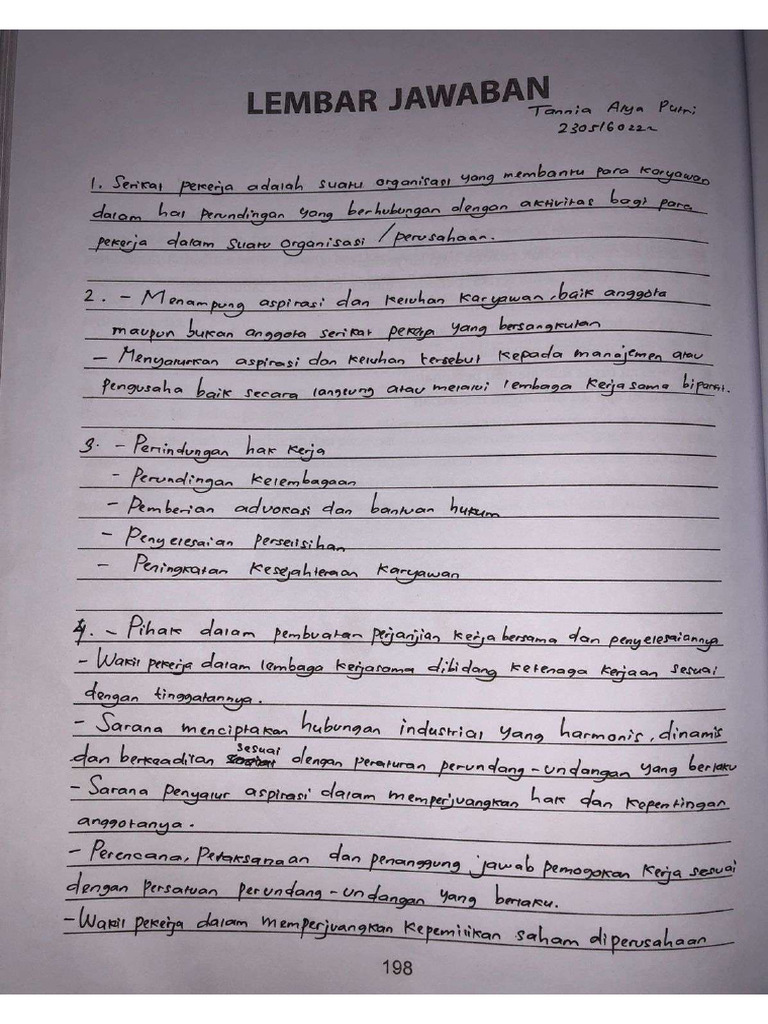 LEMBAR JAWABAN
Tannia Arya Putri
2305160222
1. Serikat pekerja adalah suatu organisasi yang membantu para karyawan
dalam hal perundingan yang berhubungan dengan aktivitas bagi para
pekerja dalam suatu organisasi / perusahaan.
2. - Menampung aspirasi dan keluhan karyawan, baik anggota
maupun bukan anggota serikat pekerja yang bersangkutan
- Menyalurkan aspirasi dan keluhan tersebut kepada manajemen atau
pengusaha baik secara langsung atau melalui lembaga kerjasama bipartit.
3. - Perlindungan hak kerja
- Perundingan kelembagaan
- Pemberian advokasi dan bantuan hukum
- Penyelesaian perselisihan
- Peningkatan kesejahteraan karyawan
4. - Pihak dalam pembuatan perjanjian kerja bersama dan penyelesaiannya
- Wakil pekerja dalam lembaga kerjasama dibidang ketenaga kerjaan sesuai
dengan tinggatannya.
- Sarana menciptakan hubungan industrial yang harmonis, dinamis
dan berkeadilan sesuai dengan peraturan perundang-undangan yang berlaku
- Sarana penyalur aspirasi dalam memperjuangkan hak dan kepentingan
anggotanya.
- Perencana, Pelaksanaan dan penanggung jawab pemogokan kerja sesuai
dengan persatuan perundang-undangan yang berlaku.
- Wakil pekerja dalam memperjuangkan kepemilikan saham diperusahaan
198